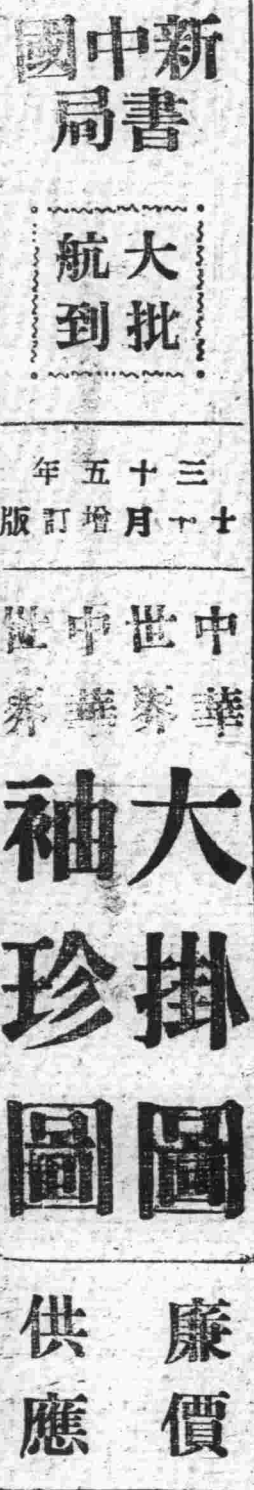 新中國
書局
大批
航到
三十五年
十一月增訂版
中華
世界
大掛圖
中華
世界
袖珍圖
廉價
供應